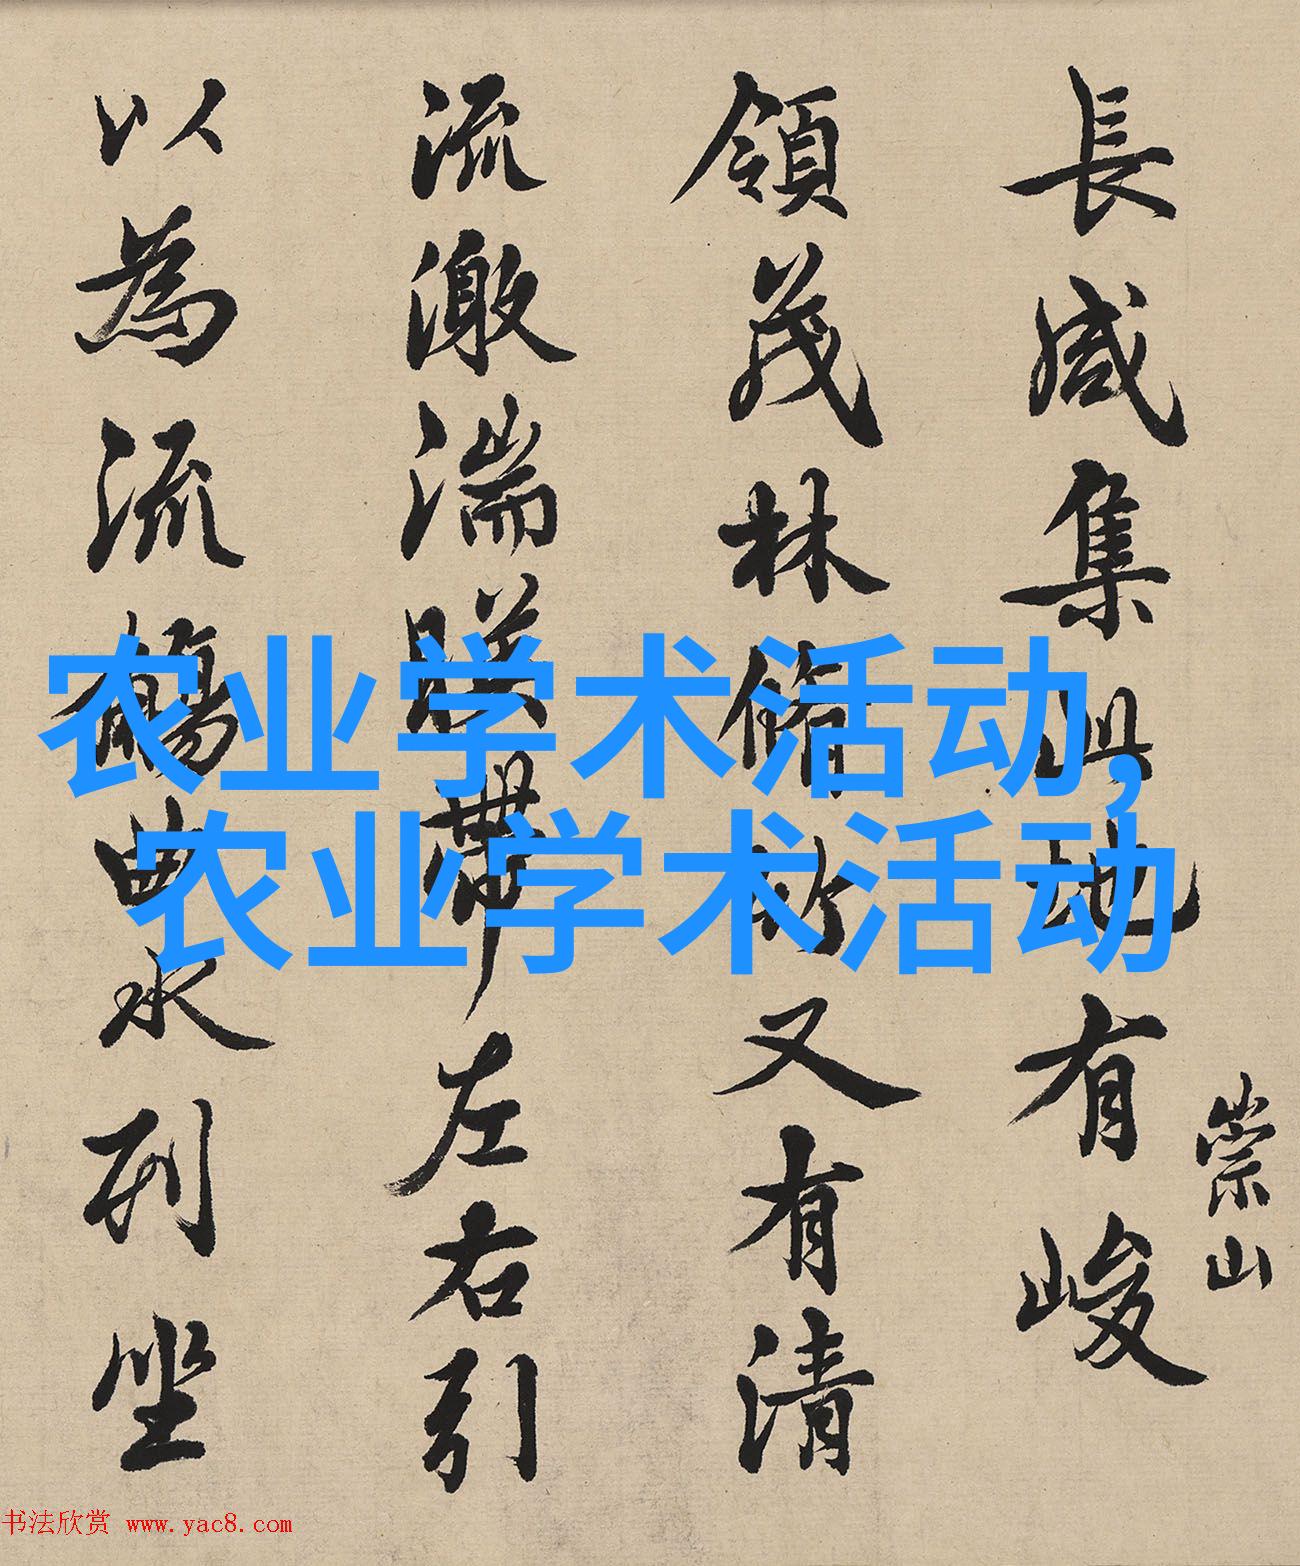 長咸集此地有峻
崇山
領茂林脩竹又有清
流激湍暎帶左右引
以為流觴曲水列坐
农业学术活动,
农业学术活动
书法欣赏 www.yac8.com